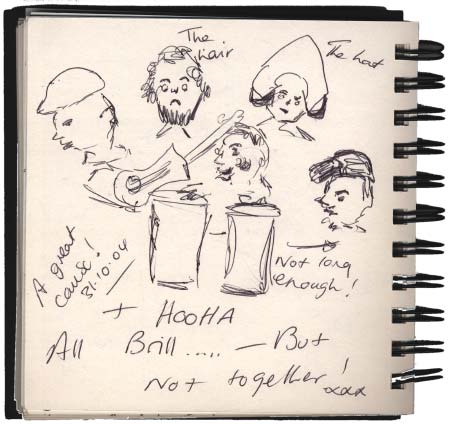 The
hair
The hat
A great
cause!
31.10.04
Not long
enough!
+ HOOHA
All Brill..... — But
Not together!
xxx